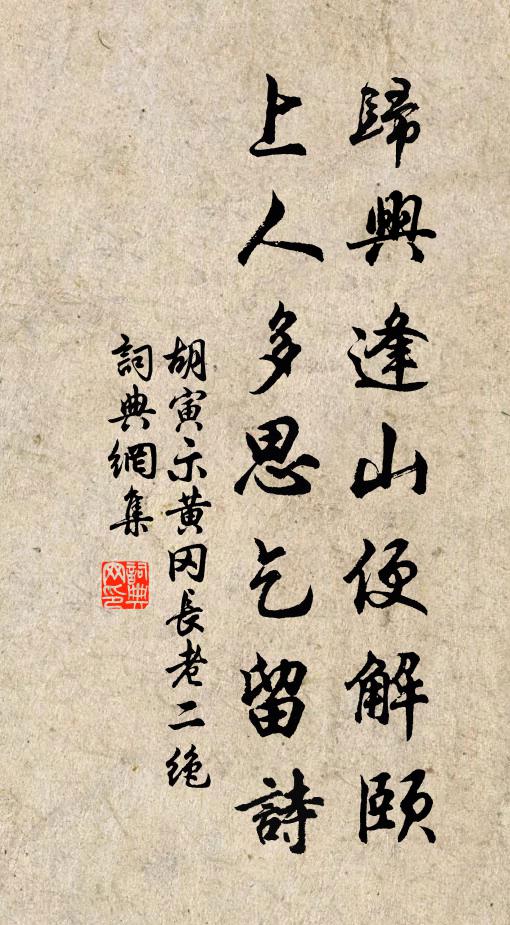 歸興逢山便解頤
上人多思乞留詩
胡寅示黃冈長老二絶
詞典網集
詞典網印